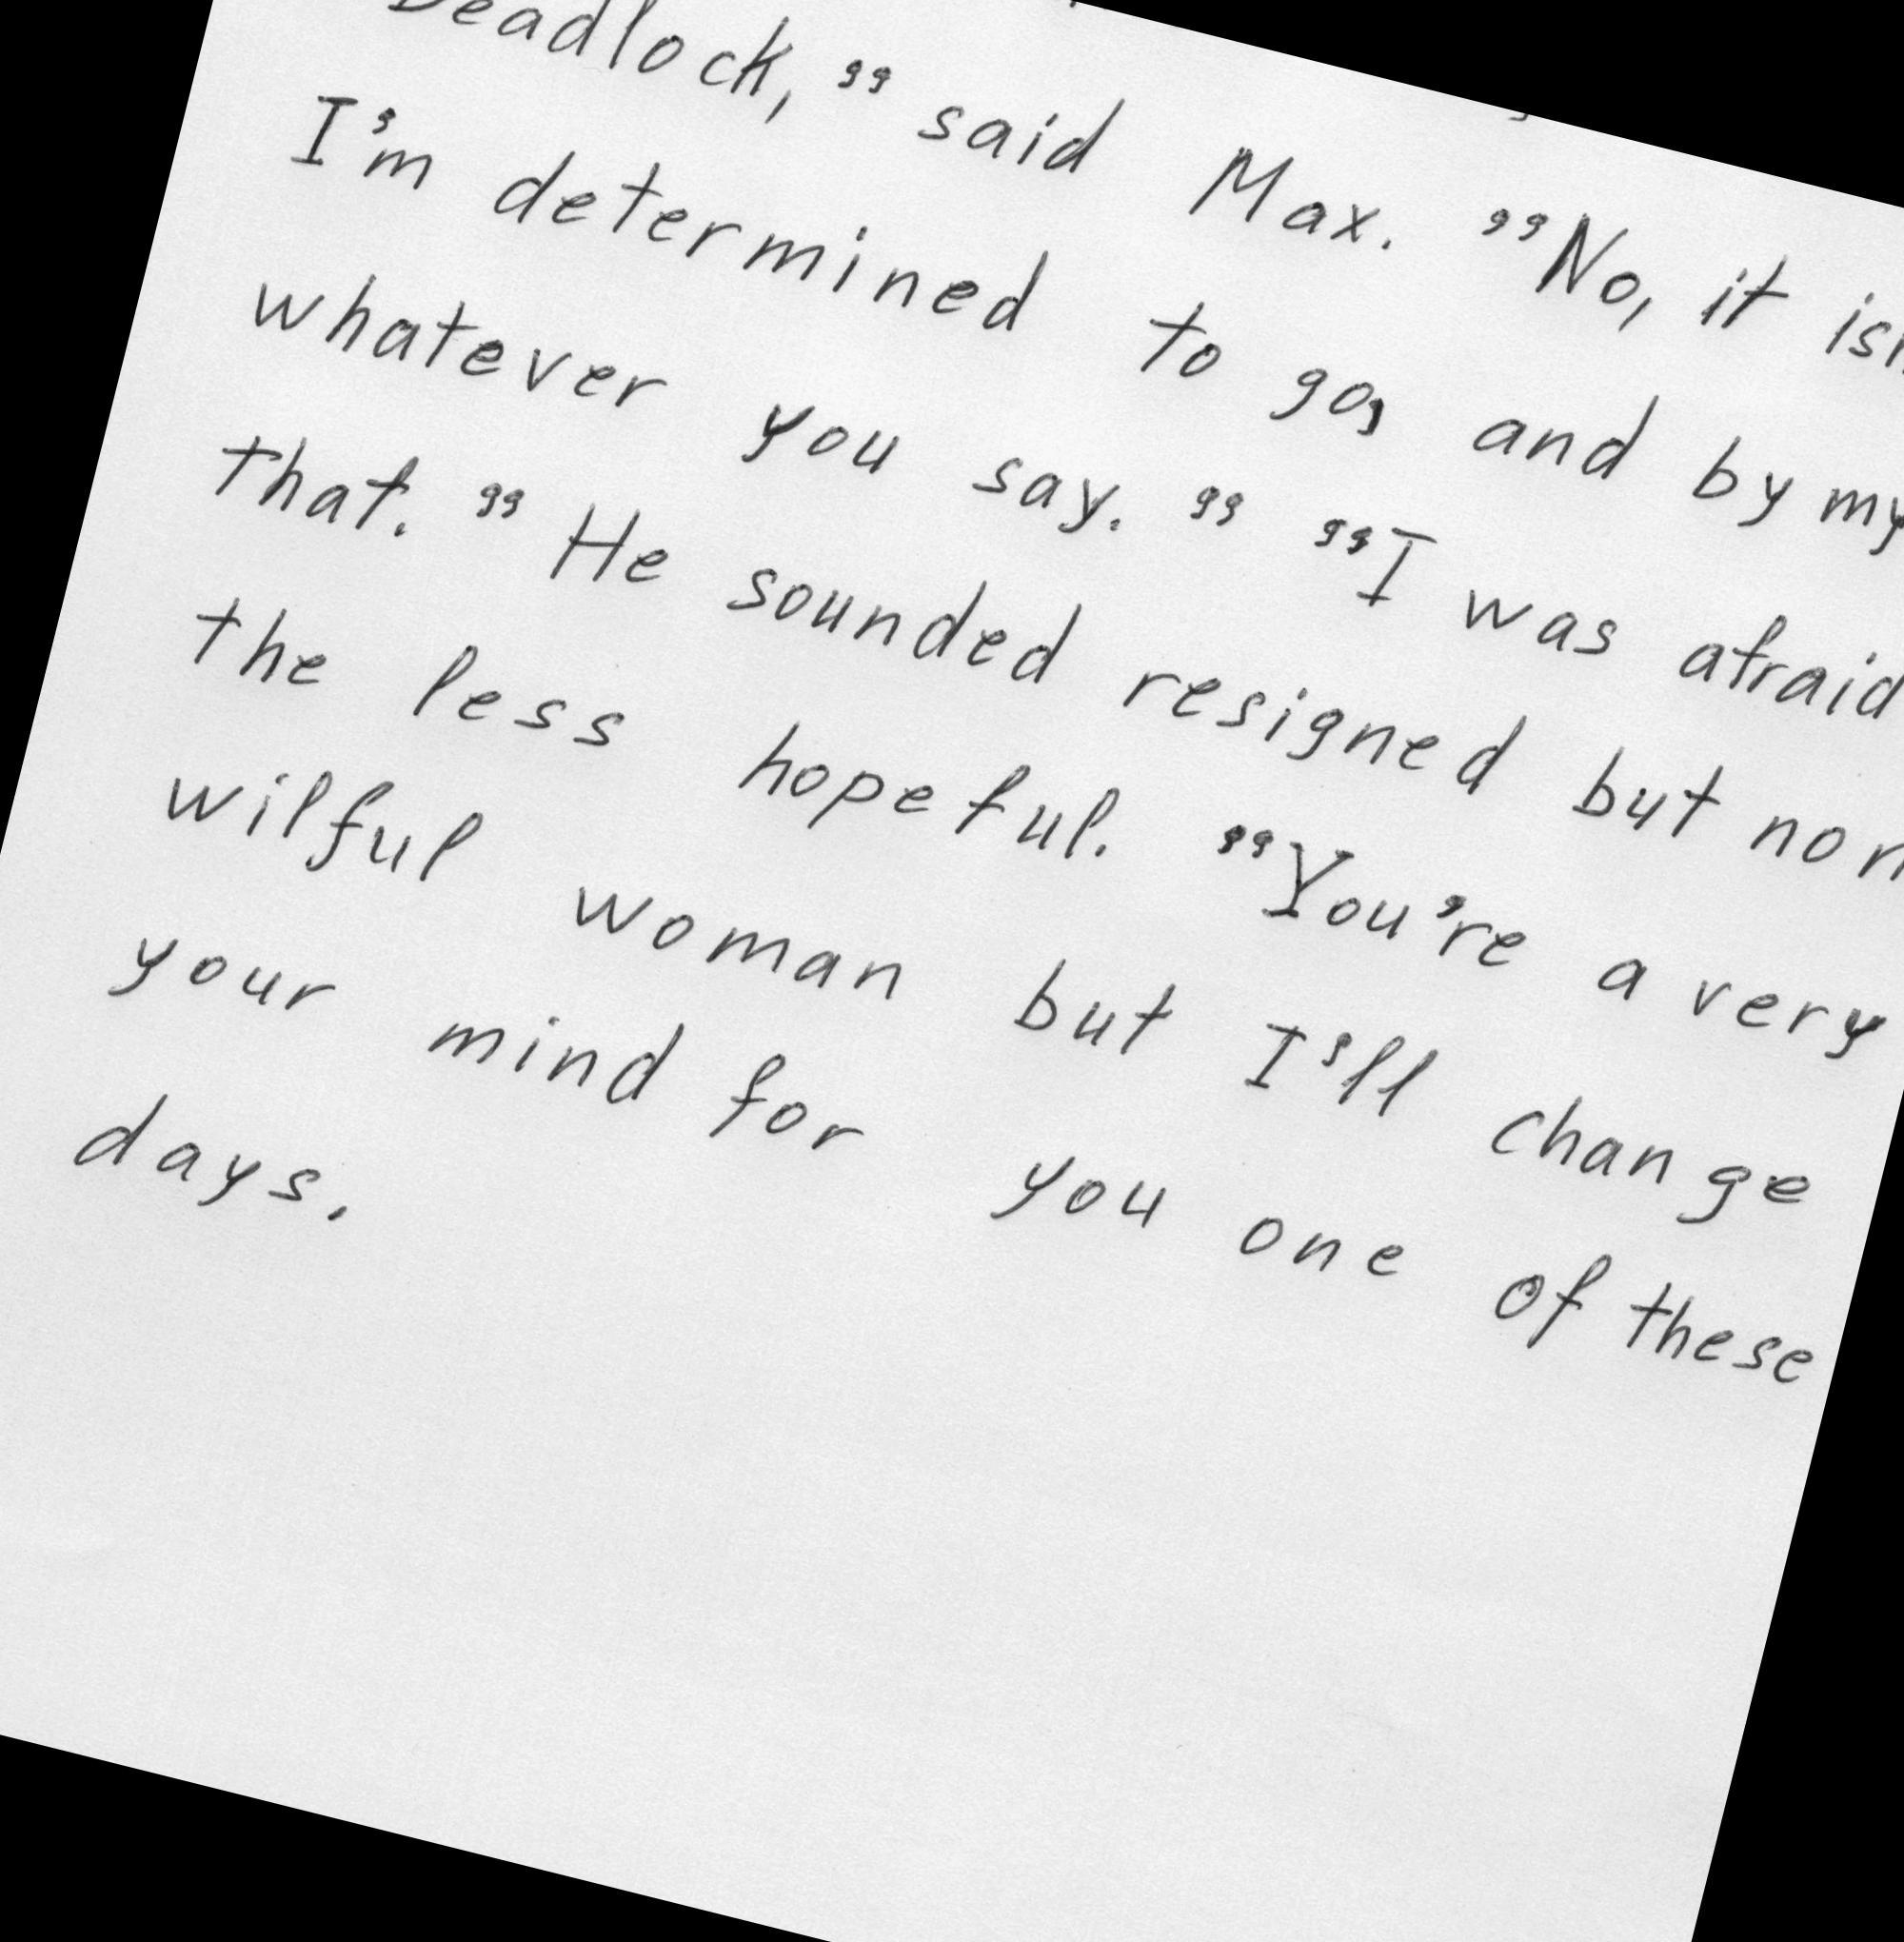 Deadlock," said Max. "No, it
I'm determined to go, and by my
whatever you say." "I was afraid
that." He sounded resigned but
the less hopeful. "You're a very
wilful woman but I'll change
your mind for you one of these
days.